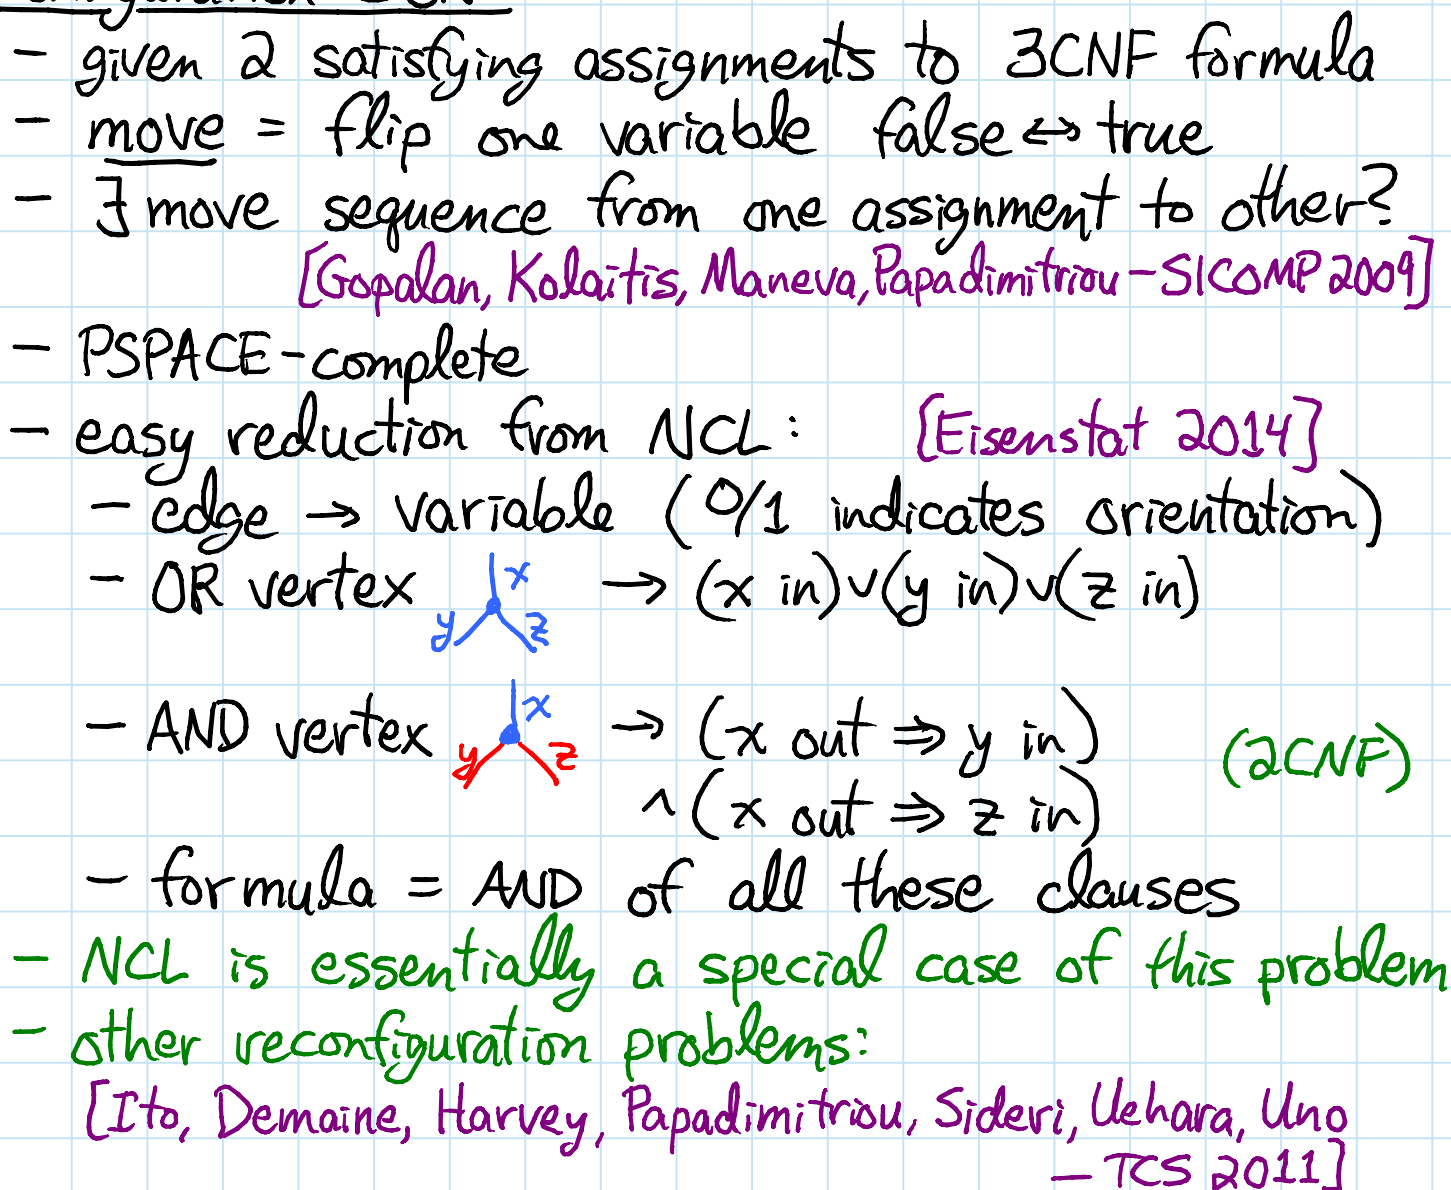 - given 2 satisfying assignments to 3CNF formula
- move = flip one variable false ↔ true
- ∃ move sequence from one assignment to other?
[Gopalan, Kolaitis, Maneva, Papadimitriou - SICOMP 2009]
- PSPACE-complete
- easy reduction from NCL: [Eisenstat 2014]
- edge → variable (0/1 indicates orientation)
- OR vertex x y z → (x in) ∨ (y in) ∨ (z in)
- AND vertex x y z → (x out ⇒ y in)
∧ (x out ⇒ z in) (2CNF)
- formula = AND of all these clauses
- NCL is essentially a special case of this problem
- other reconfiguration problems:
[Ito, Demaine, Harvey, Papadimitriou, Sideri, Uehara, Uno
- TCS 2011]